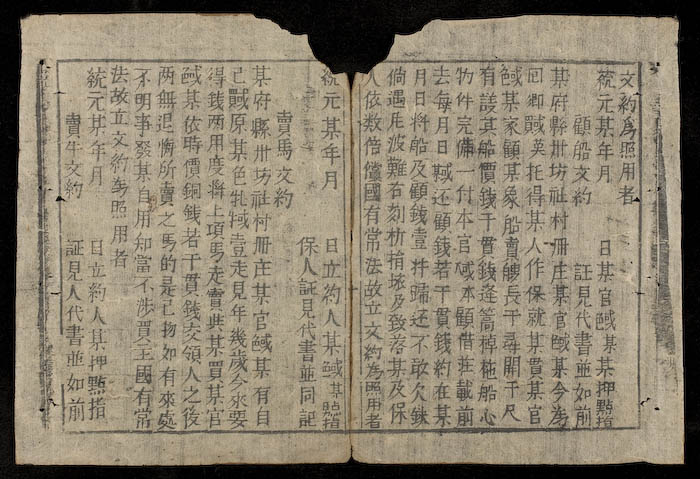 文約為照用者
統元某年月 日某官或某某押點指
顧船文約 証見代書並如前
某府縣卅坊社村冊庄某官或某今為
回鄉或 托得某人作保就某貫某官
或某家顧某象船賣艘長千尋開千尺
有該某船價銭千貫銭逢篙棹桅船心
物件完備一付本官或本顧借 載前
去每月日或还顧銭若干貫銭約在某
月日將船及顧銭壹併歸还不敢欠
倘遇 波難石刻析損壊及致落某及保
人依数倍償國有常法故立文約為照用者
統元某年月 日立約人某或某點指
保人証見代書並同記
賣馬文約
某府縣卅坊社村冊庄某官或某有自
己或原某色牝或壹走見年幾歲今來要
得銭兩用度將上項馬走賣與某買某官
或某依時價銅銭若干貫銭交領人之後
兩無退悔所賣之馬的是己物如有來處
不明事發某自用知當不涉買主國有常
法故立文約為照用者
統元某年月 日立約人某押點指
賣牛文約 証見人代書並如前